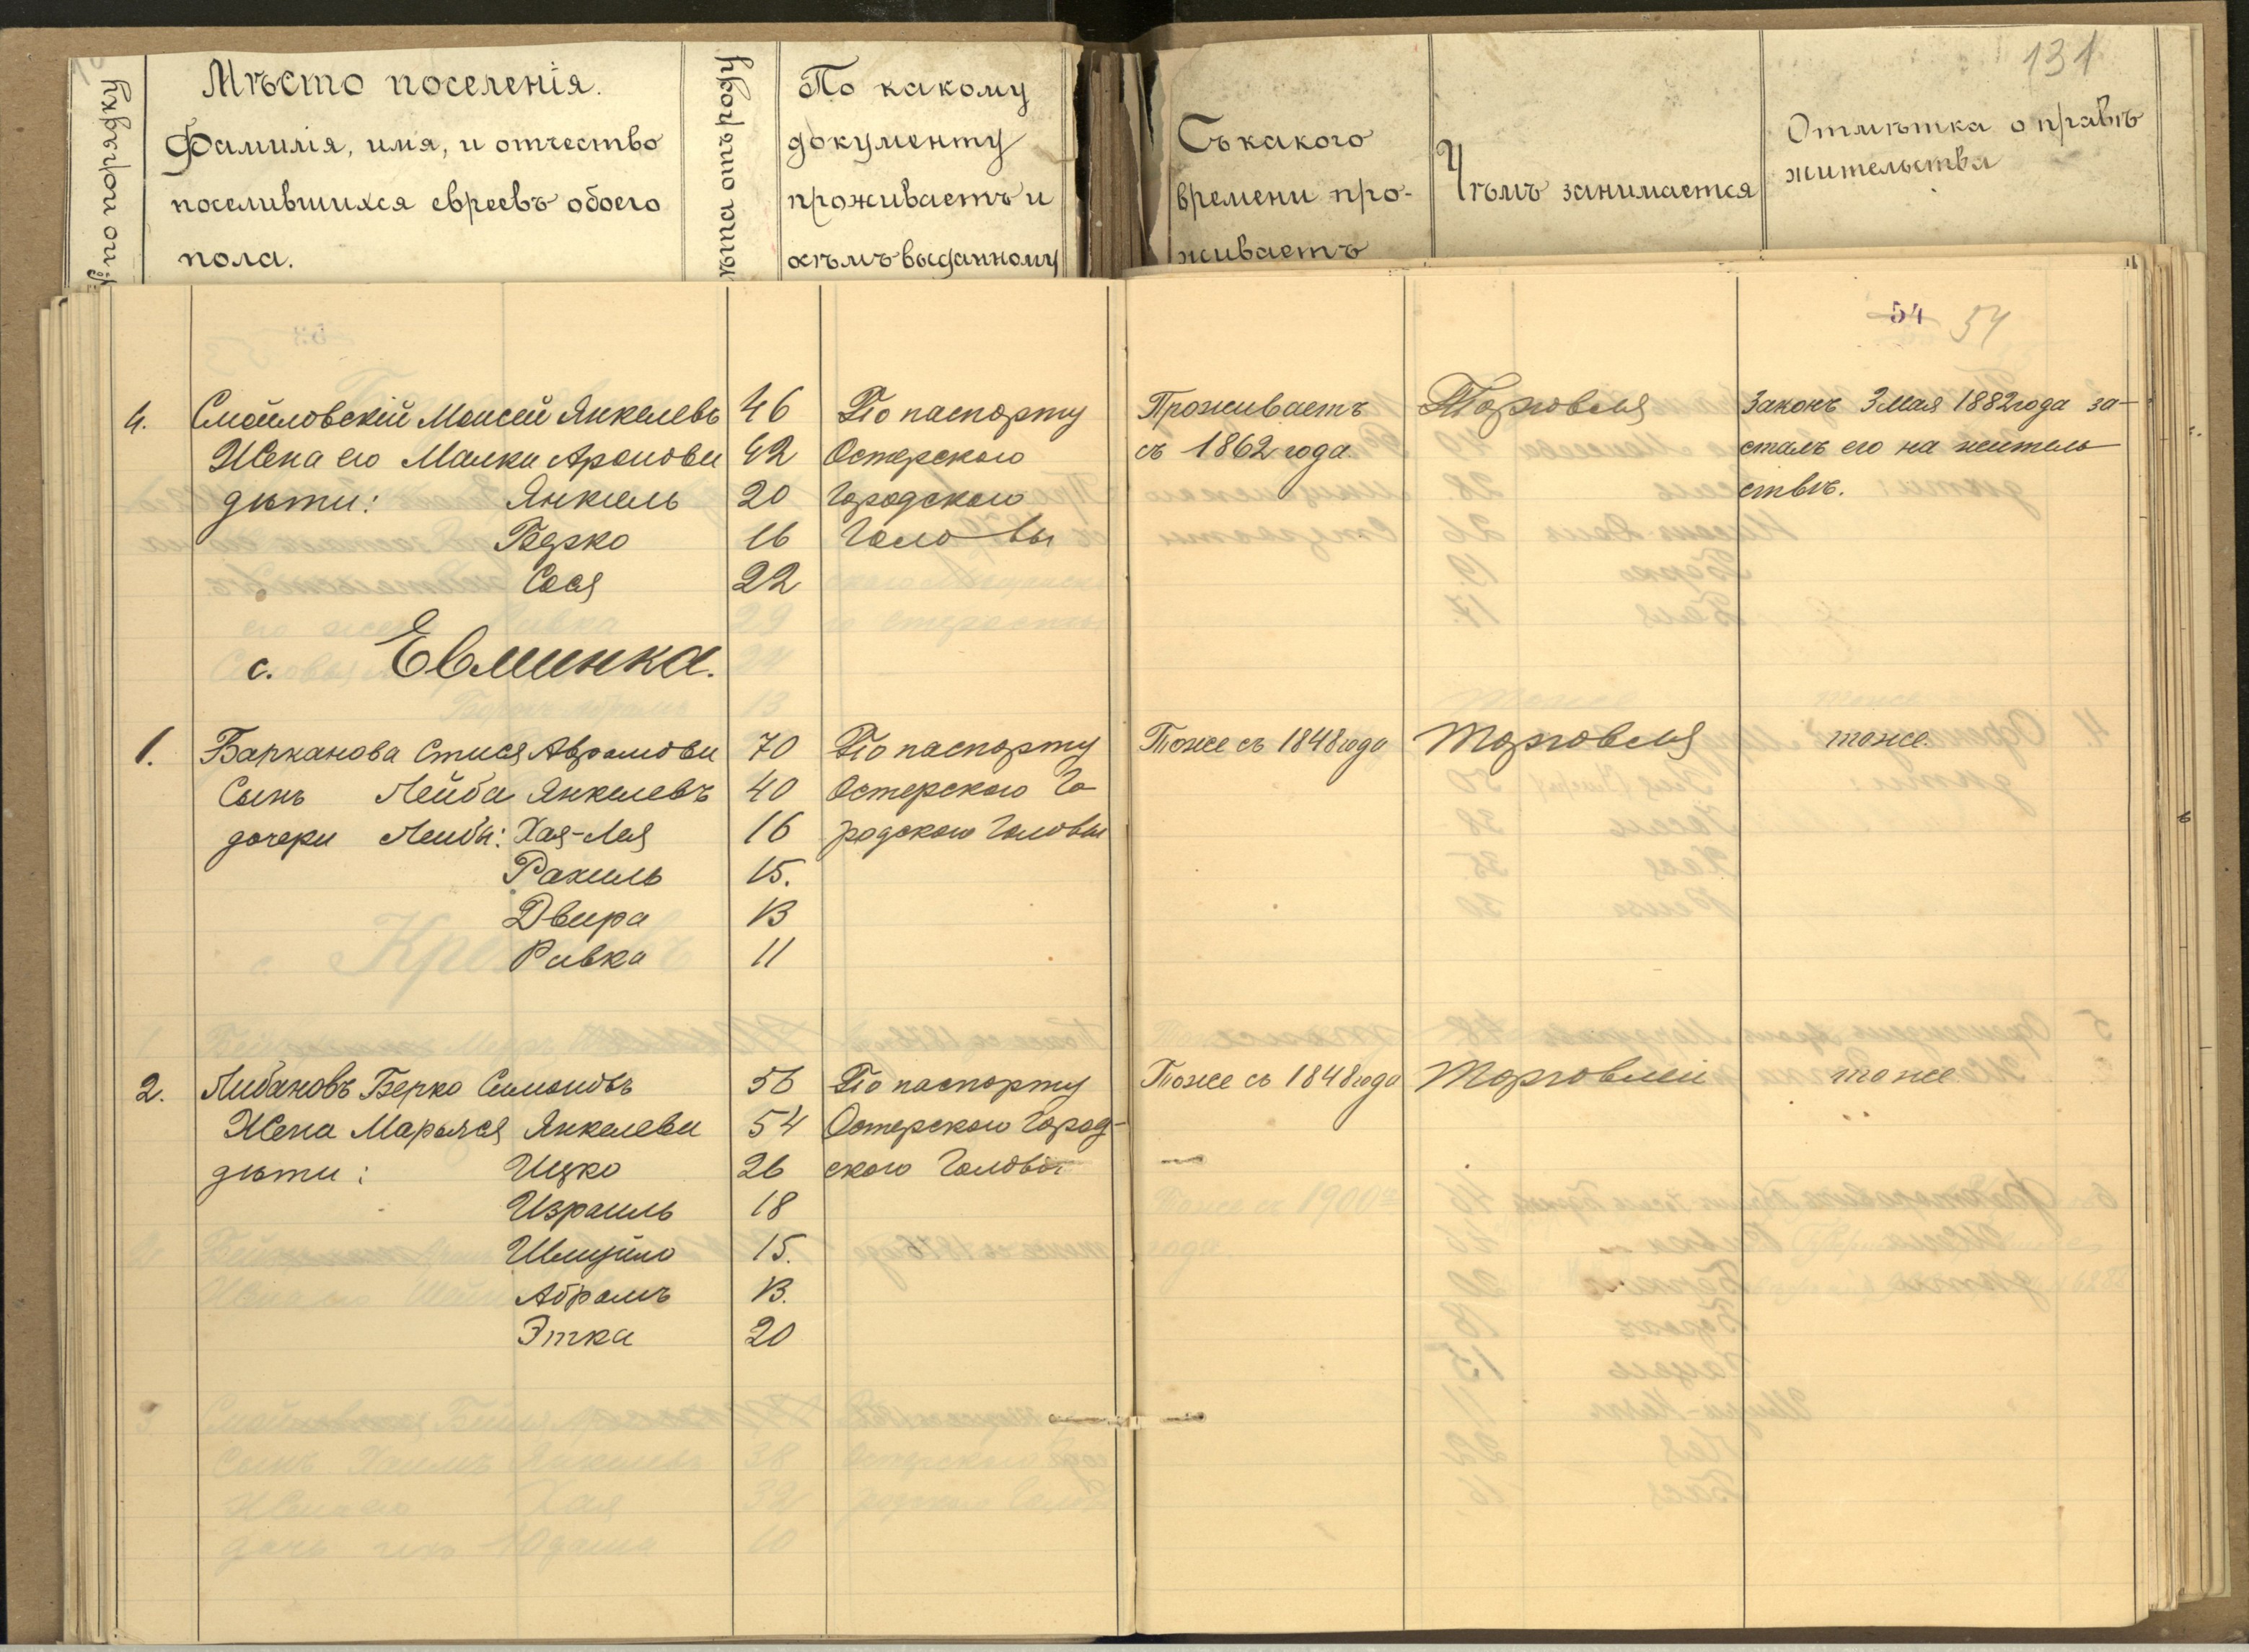 131
№ по порядку
Мѣсто поселенія.
Фамилія, имя, и отчество
поселившихся евреевъ обоего
пола.
Лѣта отъ роду
По какому
документу
проживаетъ и
кѣмъ выданному
Съ какого
времени про-
живаетъ
Чѣмъ занимается
Отмѣтка о правѣ
жительства
54 54
4. Смойловскій Моисей Янкелевъ 46 По паспорту Проживаетъ Торговля Законъ 3 мая 1882 года за-
Жена его Малка Аронова 42 Остерскаго съ 1862 года. сталъ его на житель
дѣти: Янкель 20 Городского ствѣ.
Берко 16 Головы
Сося 22
с. Евминка.
1. Барканова Стися Аврамова 70 По паспорту Тоже съ 1848 года Торговля тоже.
Сынъ Лейба Янкелевъ 40 Остерскаго Го
дочери Лейбы: Хая-Лея 16 родского Головы
Рахиль 15.
Двира 13
Ривка 11
2. Либановъ Берко Симоновъ 56 По паспорту Тоже съ 1848 года Торговлей тоже
Жена Марьяся Янкелева 54 Остерскаго Город-
дѣти: Ицко 26 ского Головы
Израиль 18
Шмуйло 15.
Абрамъ 13.
Этка 20